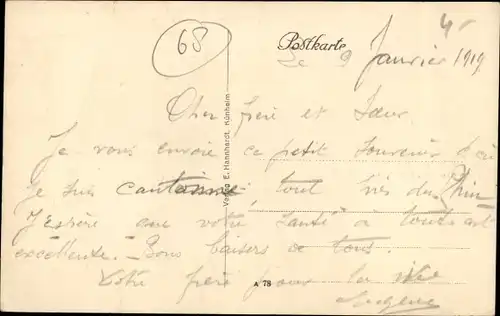 68
Postkarte
Le 9 Janvier 1919
Cher frère et Sœur
Je vous envoie ce petit souvenir d'où
je suis cantonné tout près du Rhin
J'espère que votre santé à tous est
excellente. Bons baisers de tous.
Votre frère pour la vie
Eugène
Verlag E. Hannhardt, Künheim
A 78